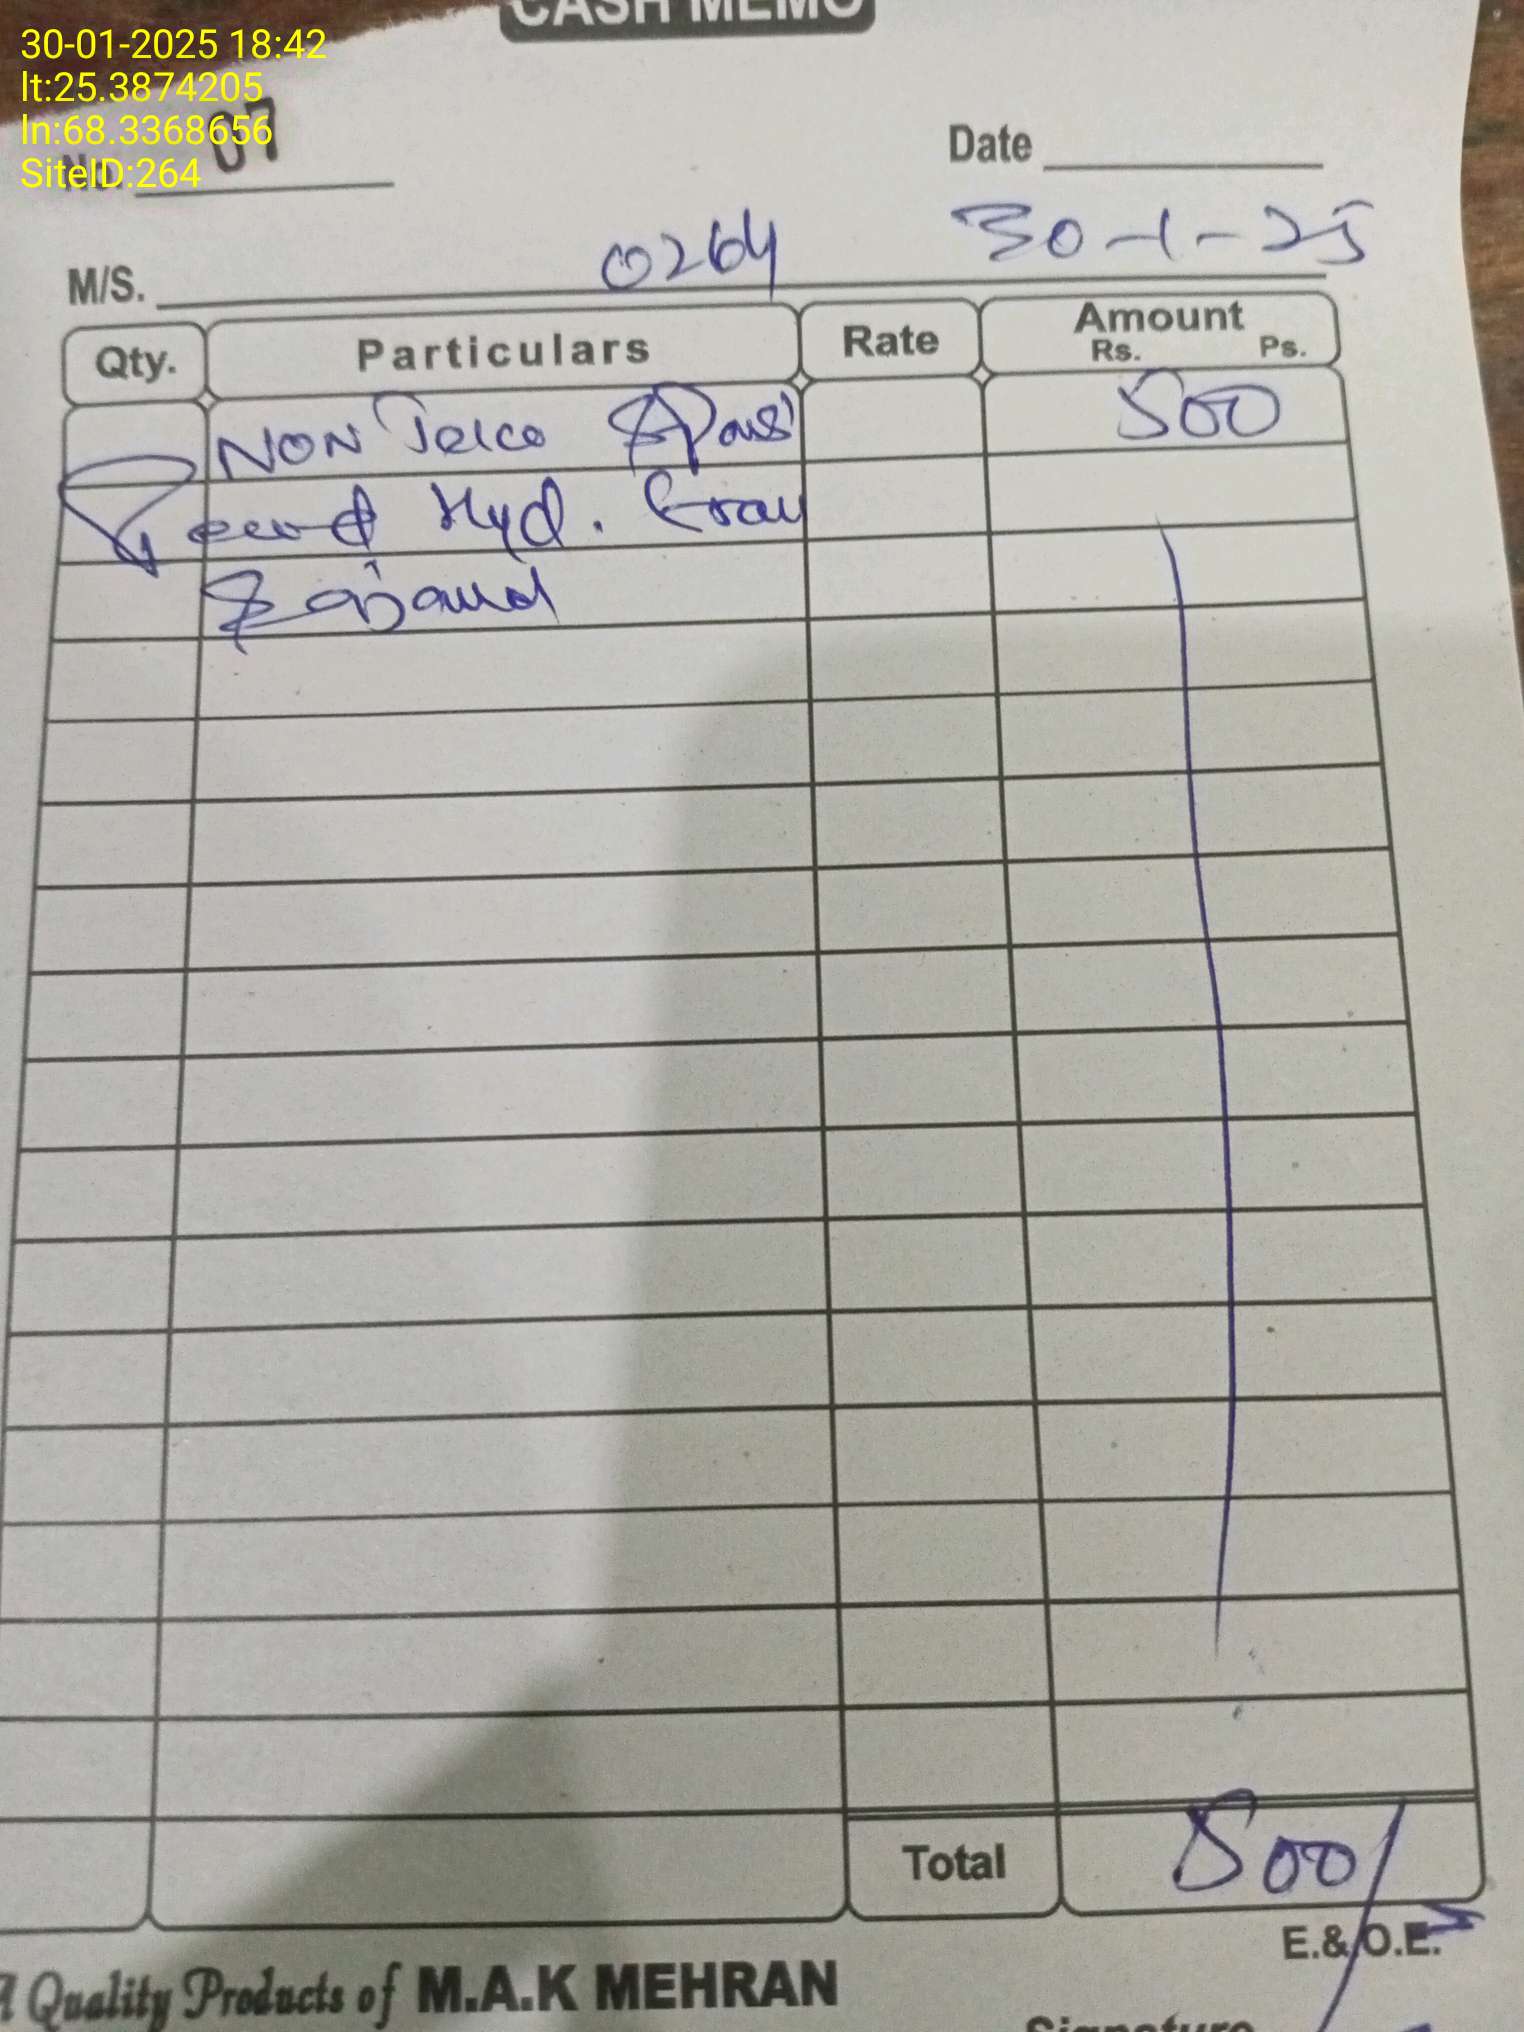 CASH MEMO
30-01-2025 18:42
lt:25.3874205
ln:68.3368656
SiteID:264
No. 07
Date
30-1-25
M/S. 0264
Qty. Particulars Rate Amount
Rs. Ps.
NON Telco 500
Hyd.
Total 500/
E.&O.E.
A Quality Products of M.A.K MEHRAN
Signature